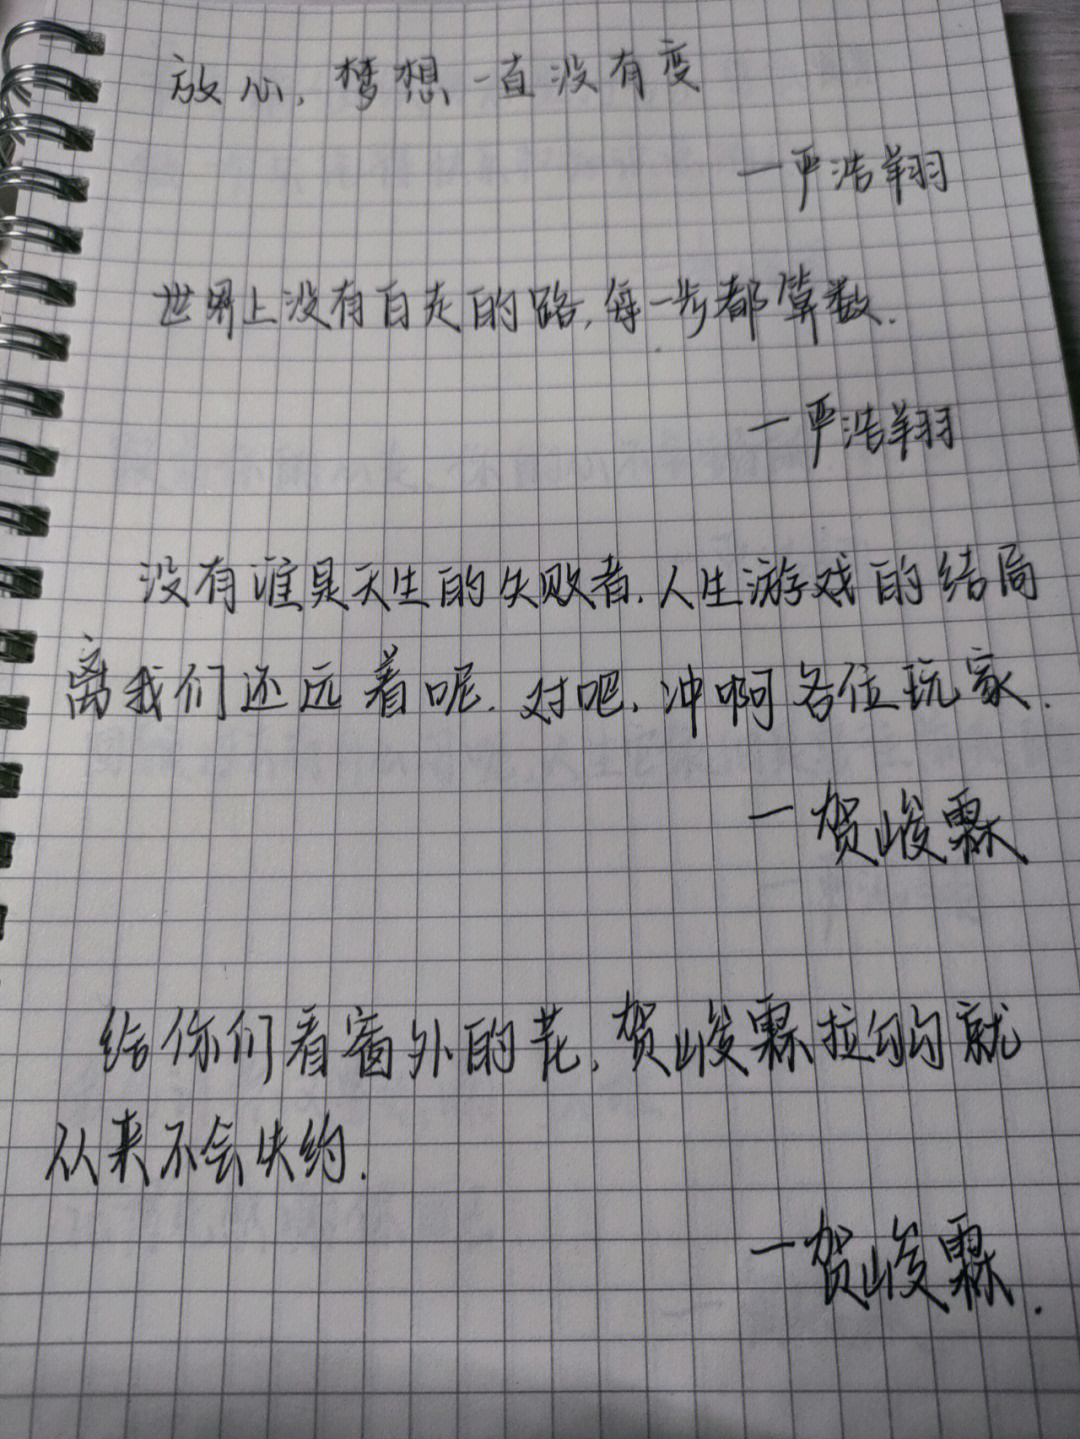 放心,梦想一直没有变
一严浩翔
世界上没有白走的路,每一步都算数.
一严浩翔
没有谁是天生的失败者.人生游戏的结局
离我们还远着呢.对吧,冲啊各位玩家.
一贺峻霖
给你们看窗外的花,贺峻霖拉勾勾就
从来不会失约.
一贺峻霖.